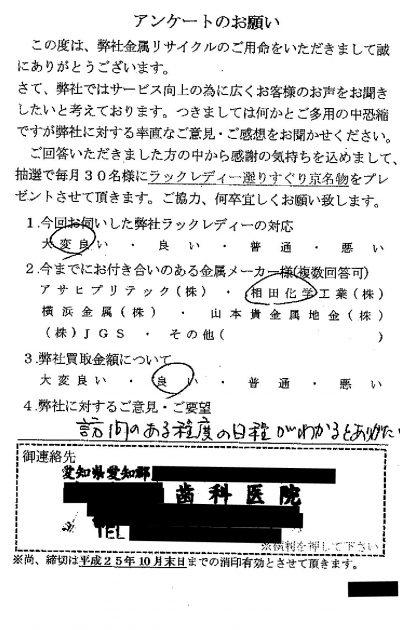 アンケートのお願い
この度は、弊社金属リサイクルのご用命をいただきまして誠
にありがとうございます。
さて、弊社ではサービス向上の為に広くお客様のお声をお聞き
したいと考えております。つきましては何かとご多用の中恐縮
ですが弊社に対する率直なご意見・ご感想をお聞かせください。
ご回答いただきました方の中から感謝の気持ちを込めまして、
抽選で毎月３０名様にラックレディー選りすぐり京名物をプレ
ゼントさせて頂きます。ご協力、何卒宜しくお願い致します。
１.今回お伺いした弊社ラックレディーの対応
大変良い ・ 良い ・ 普通 ・ 悪い
２.今までにお付き合いのある金属メーカー様(複数回答可)
アサヒプリテック(株) ・ 相田化学工業(株)
横浜金属(株) ・ 山本貴金属地金(株)
(株)ＪＧＳ ・ その他( )
３.弊社買取金額について
大変良い ・ 良い ・ 普通 ・ 悪い
４.弊社に対するご意見・ご要望
訪問のある程度の日程がわかるとありがたい
御連絡先
愛知県愛知郡
歯科医院
TEL
※横判を押して下さい
※尚、締切は平成２５年１０月末日までの消印有効とさせて頂きます。